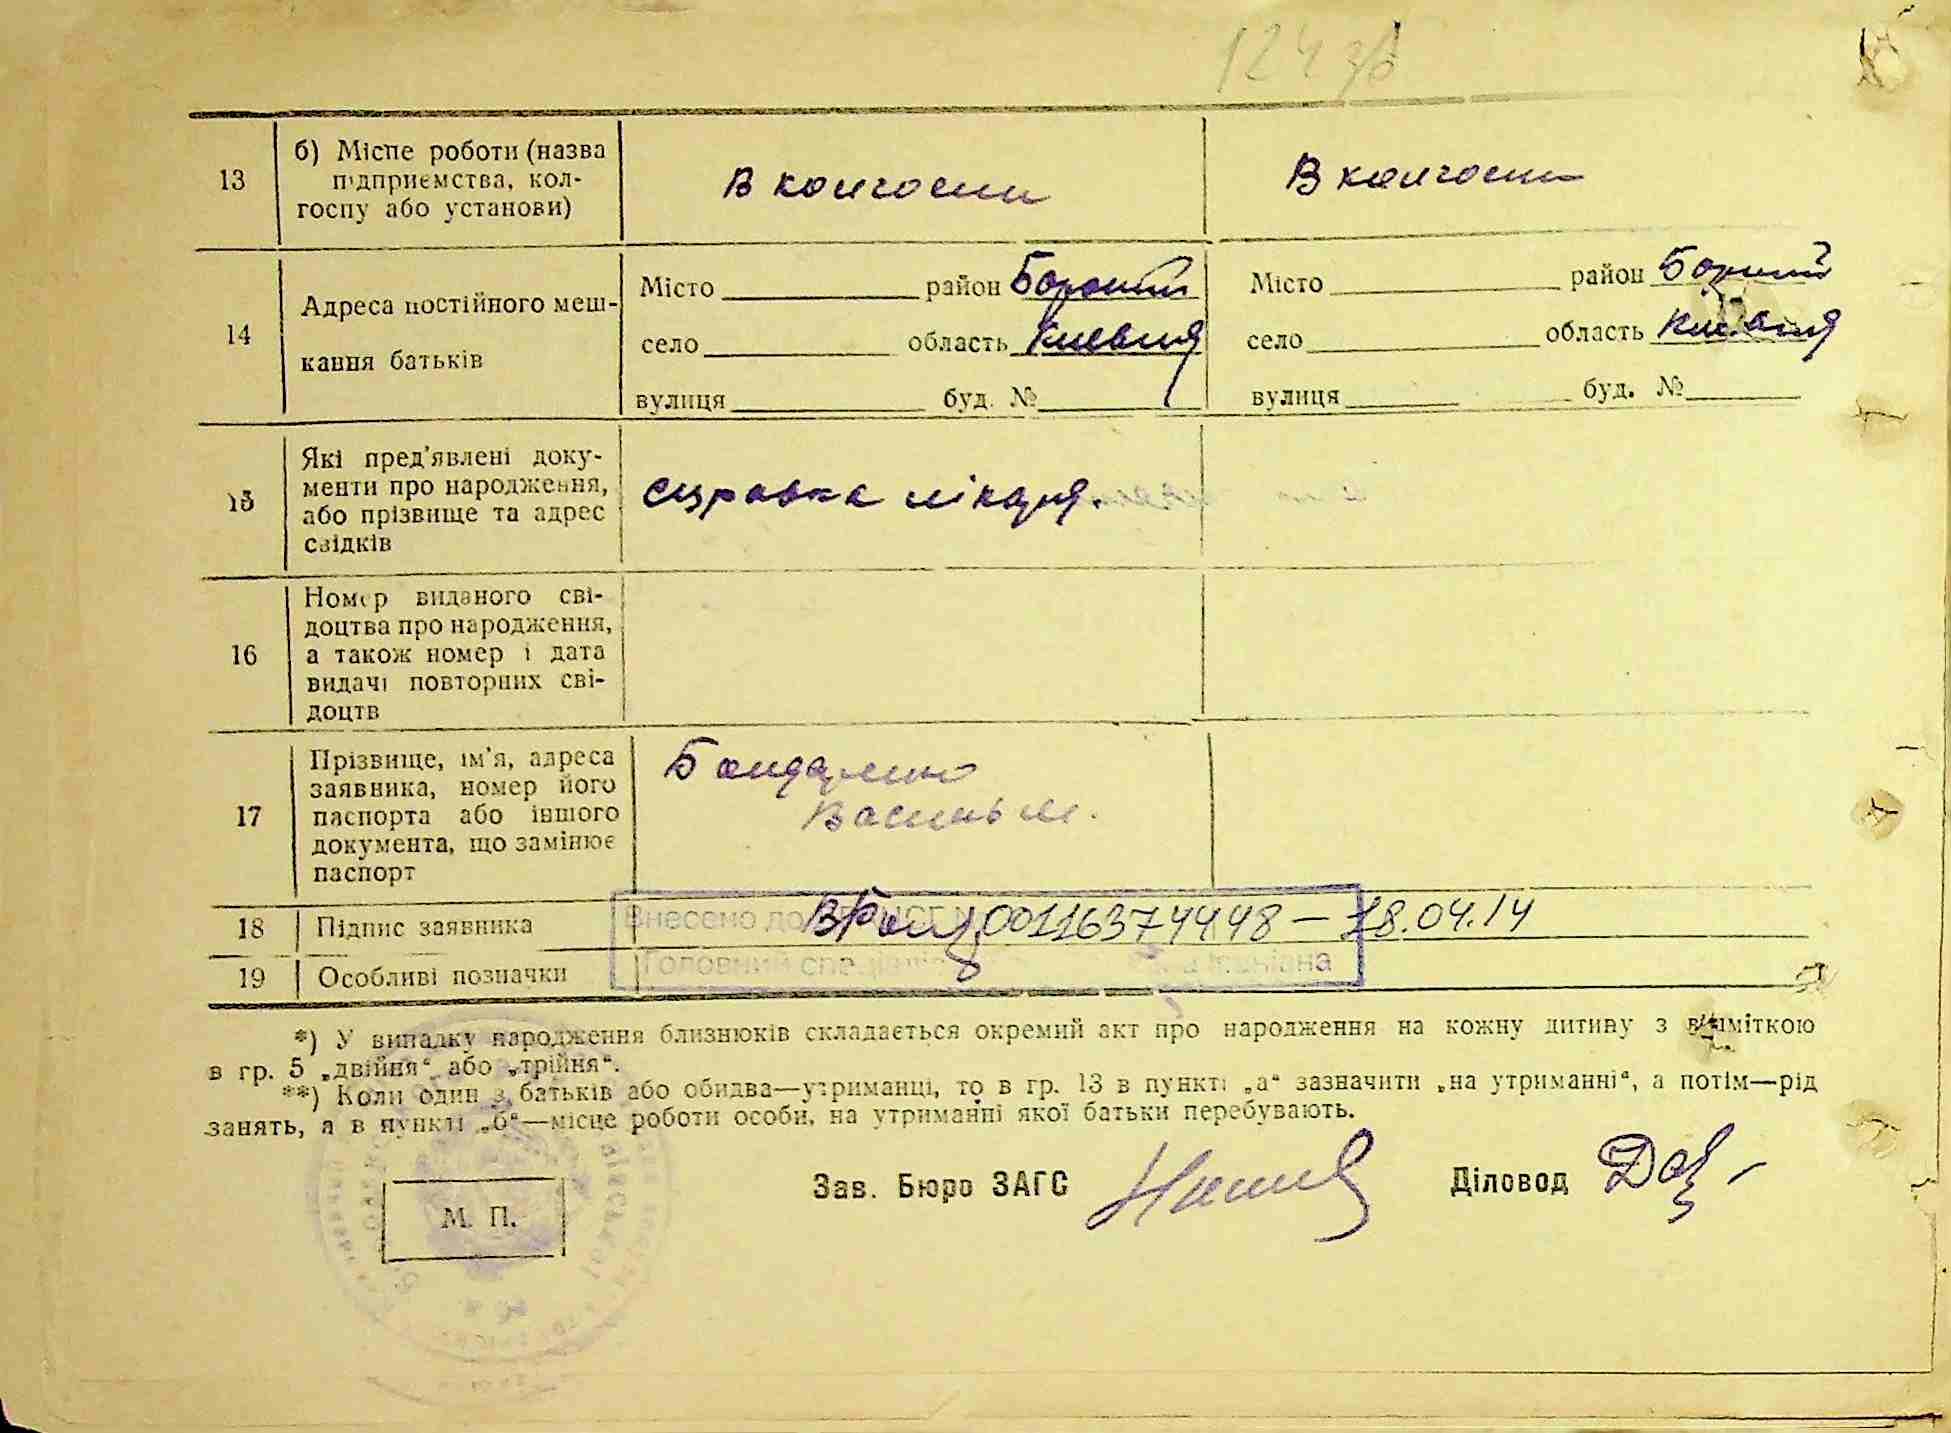 124 зв
13
б) Місце роботи (назва
підприємства, кол-
госпу або установи)
в колгоспи
В колгоспи
14
Адреса постійного меш-
кання батьків
Місто район
село область Киевская
вулиця буд. №
Місто район
село область Киевская
вулиця буд. №
15
Які пред'явлені доку-
менти про народження,
або прізвище та адрес
свідків
справка лікаря.
16
Номер виданого сві-
доцтва про народження,
а також номер і дата
видачі повторних сві-
доцтв
17
Прізвище, ім'я, адреса
заявника, номер його
паспорта або іншого
документа, що замінює
паспорт
Бондаренко
Василь М.
18
Підпис заявника
Внесено до
00116374448 — 18.04.14
19
Особливі позначки
Головний
*) У випадку народження близнюків складається окремий акт про народження на кожну дитину з відміткою
в гр. 5 „двійня“ або „трійня“.
**) Коли один з батьків або обидва—утриманці, то в гр. 13 в пункті „а“ зазначити „на утриманні“, а потім—рід
занять, а в пункті „б“—місце роботи особи, на утриманні якої батьки перебувають.
Зав. Бюро ЗАГС
Діловод
М. П.